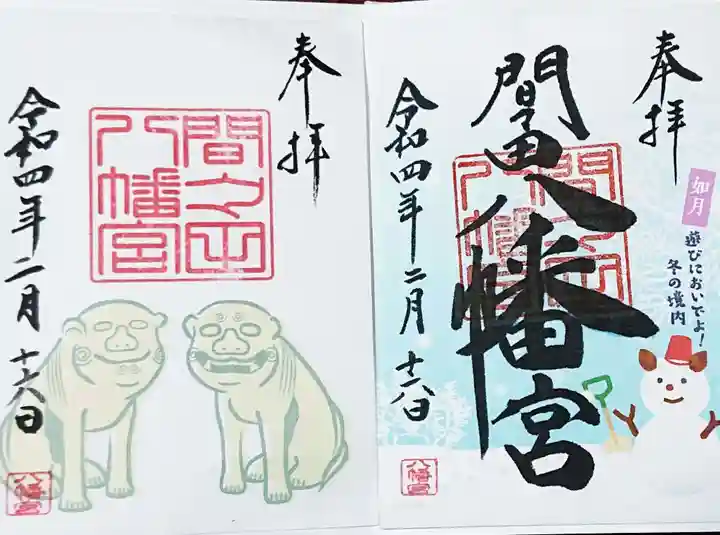 奉拝
間々田
八幡宮
令和四年二月十六日
八幡宮
奉拝
間々田八幡宮
間々田
八幡宮
令和四年二月十六日
八幡宮
如月
遊びにおいでよ！
冬の境内